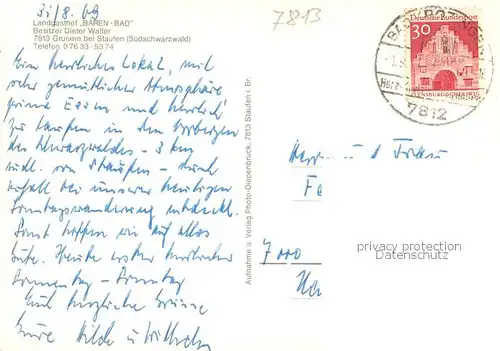 31/8.69
7813
Landgasthof „BÄREN-BAD"
Besitzer Dieter Walter
7813 Grunern bei Staufen (Südschwarzwald)
Telefon 0 76 33 - 53 74
Ein herrliches Lokal, mit
sehr gemütlicher Atmosphäre
prima Essen und herrlich
zu laufen in den Vorbergen
des Schwarzwaldes - 3 km
südl. von Staufen - durch
Zufall bei unserer heutigen
Sonntagswanderung entdeckt.
Sonst hoffen wir auf alles
Gute. Heute erster herrlicher
Sonnentag - Sonntag
Euch herzliche Grüsse
Eure Hilde u Wilhelm
Aufnahme u. Verlag Photo-Diepenbruck, 7813 Staufen i. Br.
Deutsche Bundespost
30
BAD KROZINGEN
Herz-
7812
Herrn u d Frau
Fa
7000
privacy protection
watermark